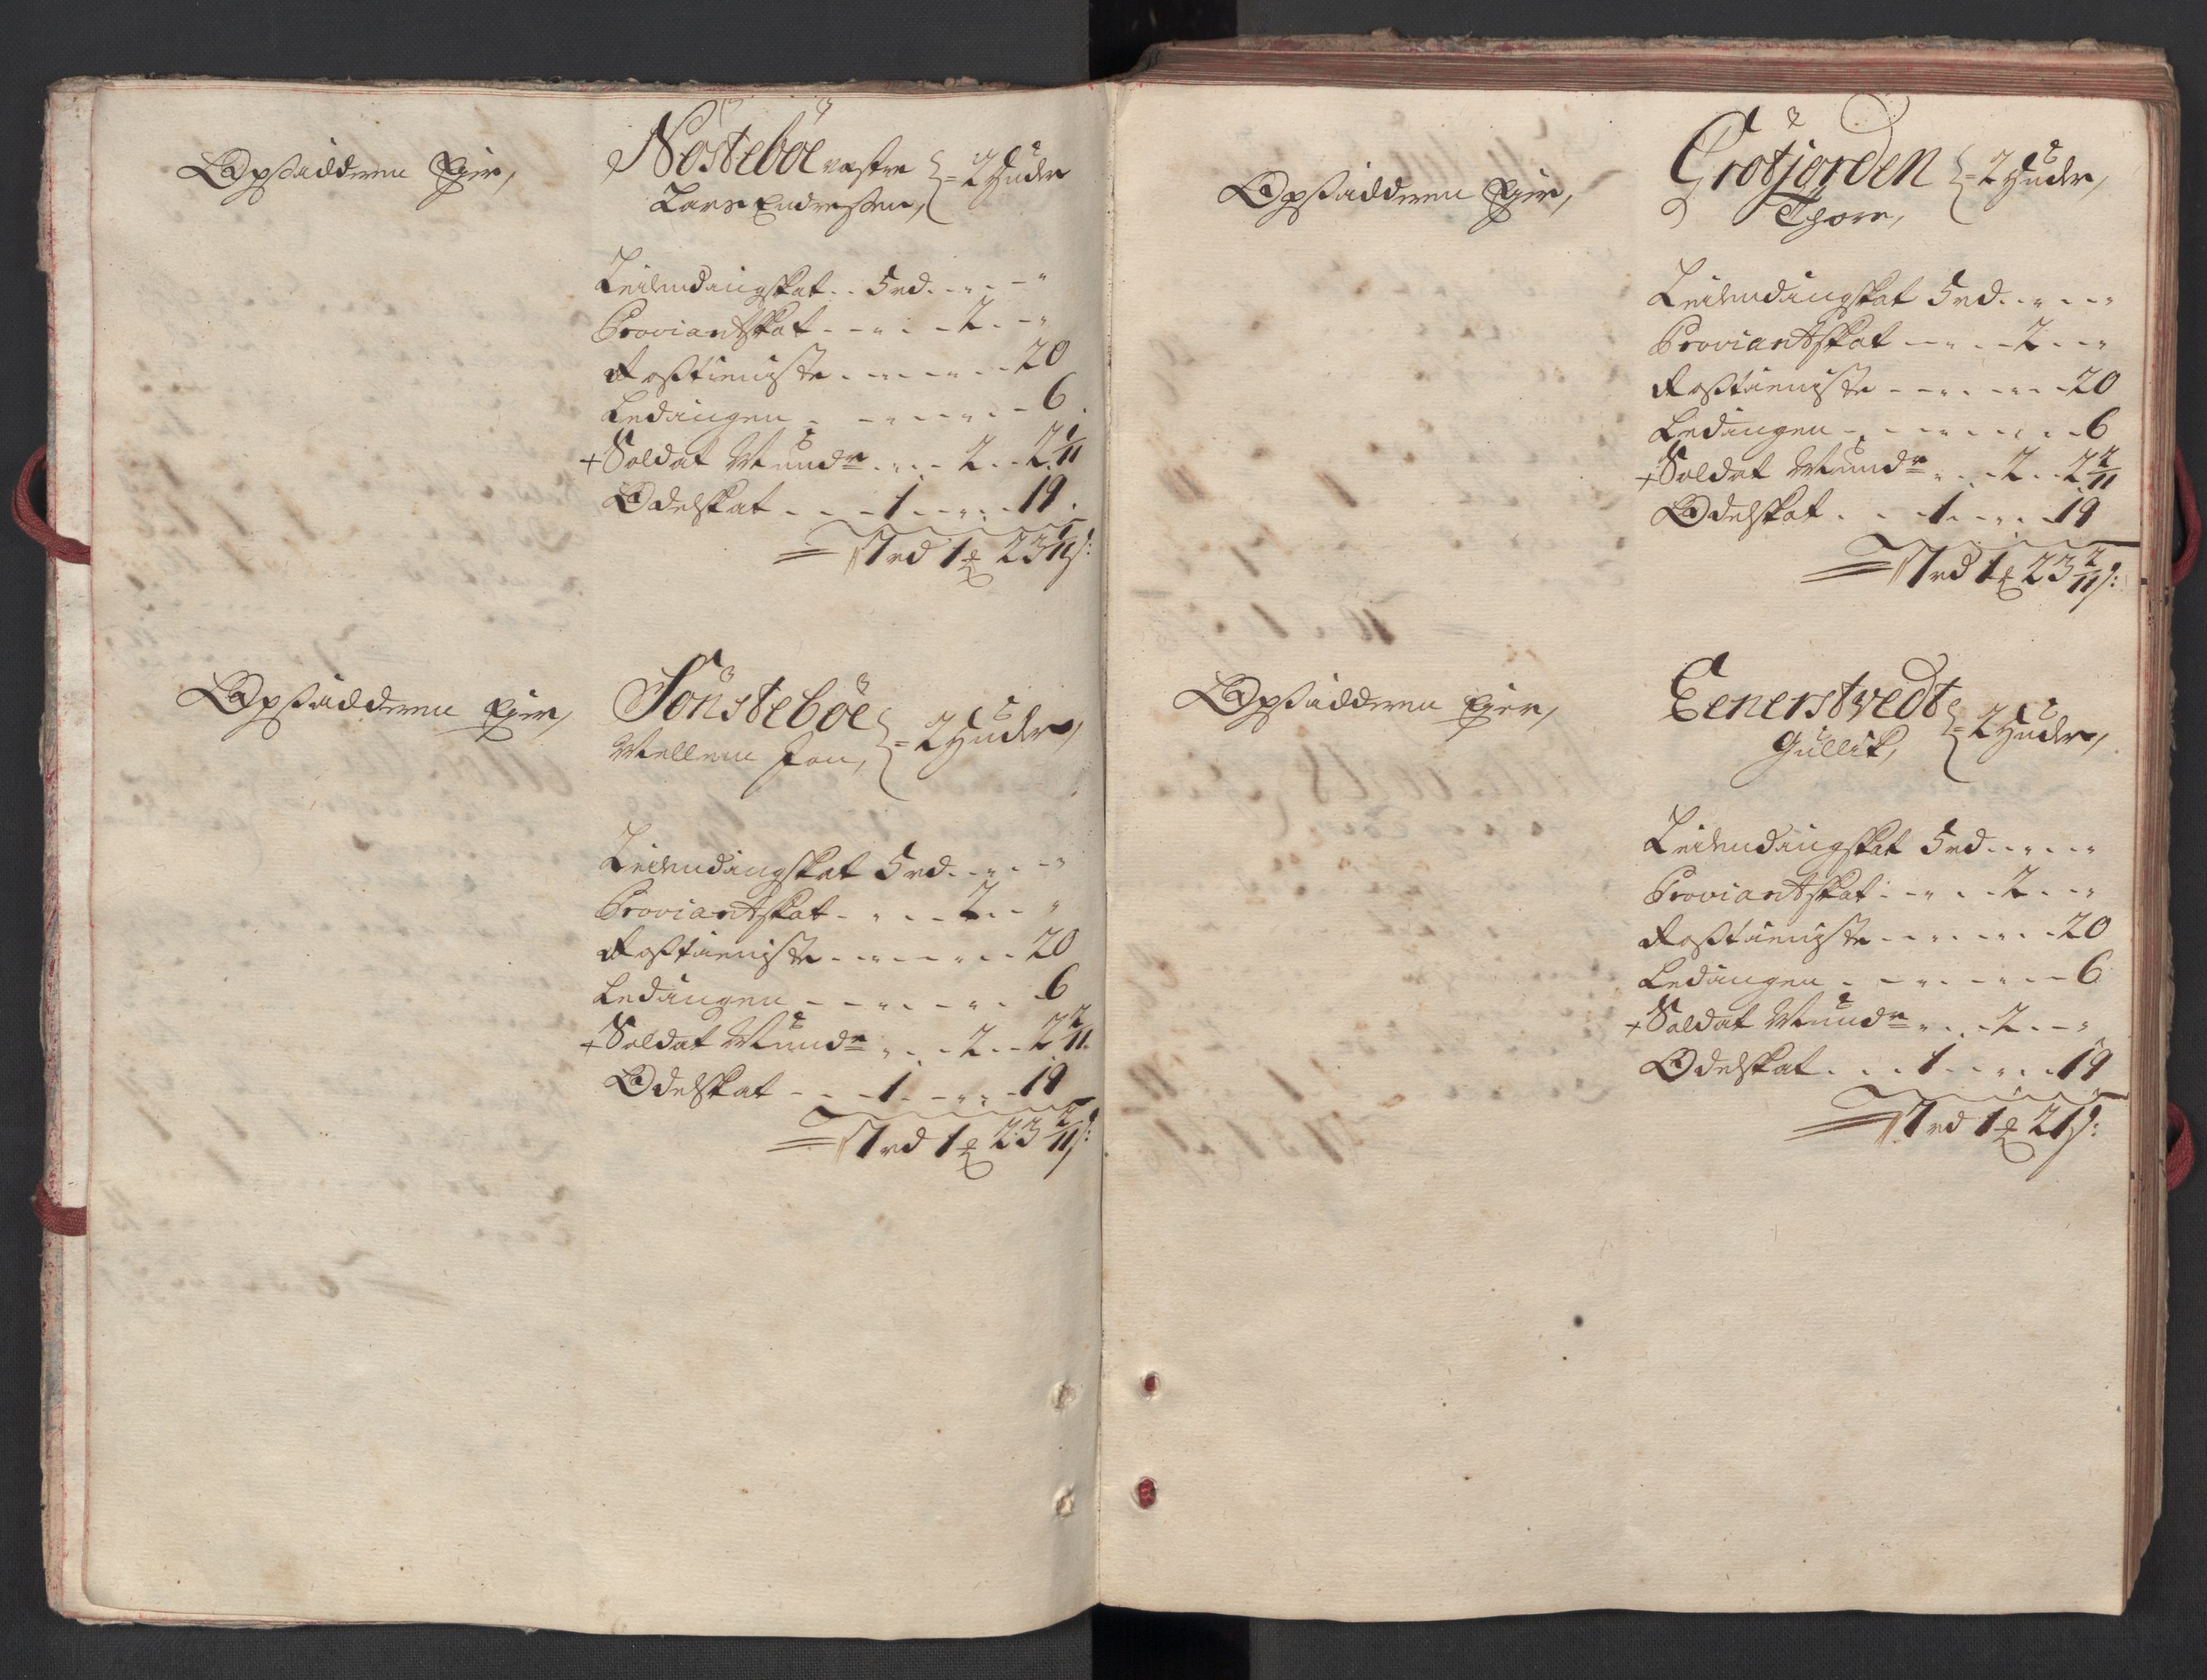 Opsidderen Ejer,
Nösteböe vestre
Lars Endresen, } = 2 Huder
Leilendingskat . . 5 rd . . „ . . „
Proviantskat . . „ . . 2 . . „
Rostieniste . . „ . . „ . . 20
Ledingen . . „ . . „ . . 6
+ Soldat Mundr . . „ . . 2 . . 2 2/11
Odelskat . . 1 . . „ . . 19
= 7 rd 1 ort 23 2/11 s:
Opsidderen Ejer,
Sönsteböe
Mellem Jon, } = 2 Huder,
Leilendingskat 5 rd . . „ . . „
Proviantskat . . „ . . 2 . . „
Rostieniste . . „ . . „ . . 20
Ledingen . . „ . . „ . . 6
+ Soldat Mundr . . „ . . 2 . . 2 2/11
Odelskat . . 1 . . „ . . 19
= 7 rd 1 ort 23 2/11 s:
Opsidderen Ejer,
Grotjorden
Thore, } = 2 Huder,
Leilendingskat 5 rd . . „ . . „
Proviantskat . . „ . . 2 . . „
Rostieniste . . „ . . „ . . 20
Ledingen . . „ . . „ . . 6
+ Soldat Mundr . . „ . . 2 . . 2 2/11
Odelskat . . 1 . . „ . . 19
= 7 rd 1 ort 23 2/11 s:
Opsidderen Ejer,
Eenerstvedt
Gullik, } = 2 Huder,
Leilendingskat 5 rd . . „ . . „
Proviantskat . . „ . . 2 . . „
Rostieniste . . „ . . „ . . 20
Ledingen . . „ . . „ . . 6
+ Soldat Mundr . . „ . . 2 . . „
Odelskat . . 1 . . „ . . 19
= 7 rd 1 ort 21 s: